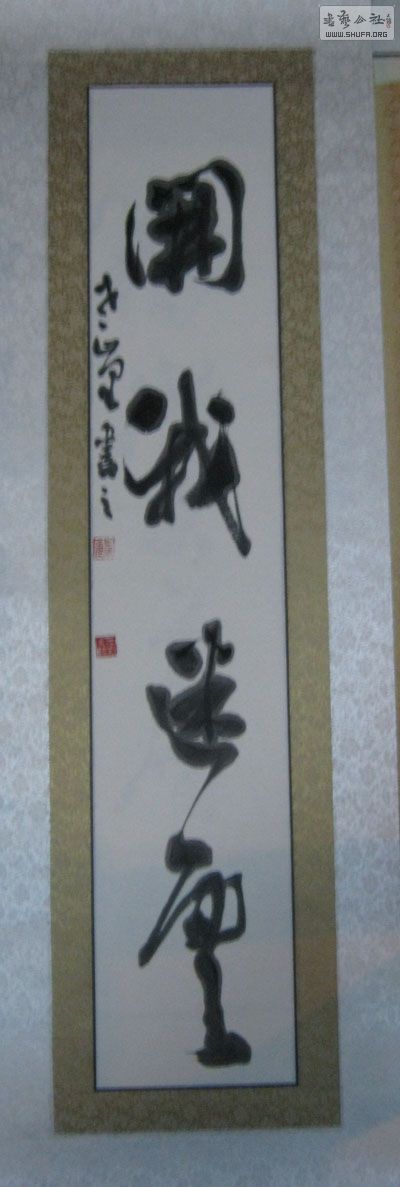 書藝公社
WWW.SHUFA.ORG
開我迷塵
書之